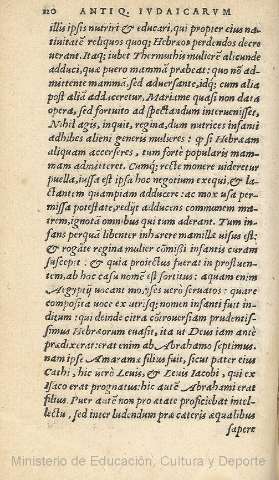 220 ANTIQ. IVDAICARVM
illis ipsis nutriri & educari, qui propter eius na
tiuitatē reliquos quoq; Hebræos perdendos decre
uerant. Itaq; iubet Thermuthis mulierē alicunde
adduci, quæ puero mammā præbeat: quo nō ad-
mittente mammā, sed aduersante, idq; cum alia
post aliā adduceretur, Mariame quasi non data
opera, sed fortuito ad spectandum interuenisset,
Nihil agis, inquit, regina, dum nutrices infanti
adhibes alieni generis mulieres: q si Hebræam
aliquam accerseres, tum forte popularis mam-
mam admitteret. Cumq; recte monere uideretur
puella, iussa est ipsa hoc negotium exequi, & la
ctantem quampiam adducere. ac mox usa per-
missa potestate, redijt adducens communem ma-
trem, ignotā omnibus qui tum aderant. Tum in-
fans perquā libenter inhærere mamillæ uisus est:
& rogāte regina mulier cōmissi infantis curam
suscepit. & quia proiectus fuerat in profluen-
tem, ab hoc casu nomē est sortitus: aquam enim
Aegyptij uocant mo, yses uerò seruatos: quare
composita uoce ex utrisq; nomen infanti fuit in-
ditum: qui deinde citra cōtrouersiam prudentis-
simus Hebræorum euasit, ita ut Deus iam antè
prædixerat: erat enim ab Abrahamo septimus.
nam ipse Amaramæ filius fuit, sicut pater eius
Cathi, hic uerò Leuis, & Leuis Iacobi, qui ex
Isaco erat prognatus: hic autē Abrahami erat
filius. Puer autē non pro ætate proficiebat intel-
lectu, sed inter ludendum præ cæteris æqualibus
sapere
Ministerio de Educación, Cultura y Deporte